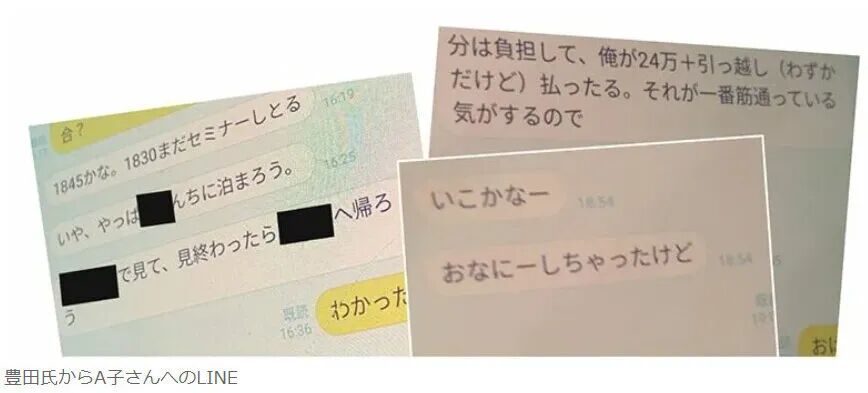 合?
16:19
1845かな。1830まだセミナーしとる
16:25
いや、やっぱ
んちに泊まろう。
で見て、見終わったら
へ帰ろ
う
既読
16:36
わかった
分は負担して、俺が24万+引っ越し(わずか
だけど)払ったる。それが一番筋通っている
気がするので
いこかなー
18:54
おなにーしちゃったけど
18:54
既読
豊田氏からA子さんへのLINE